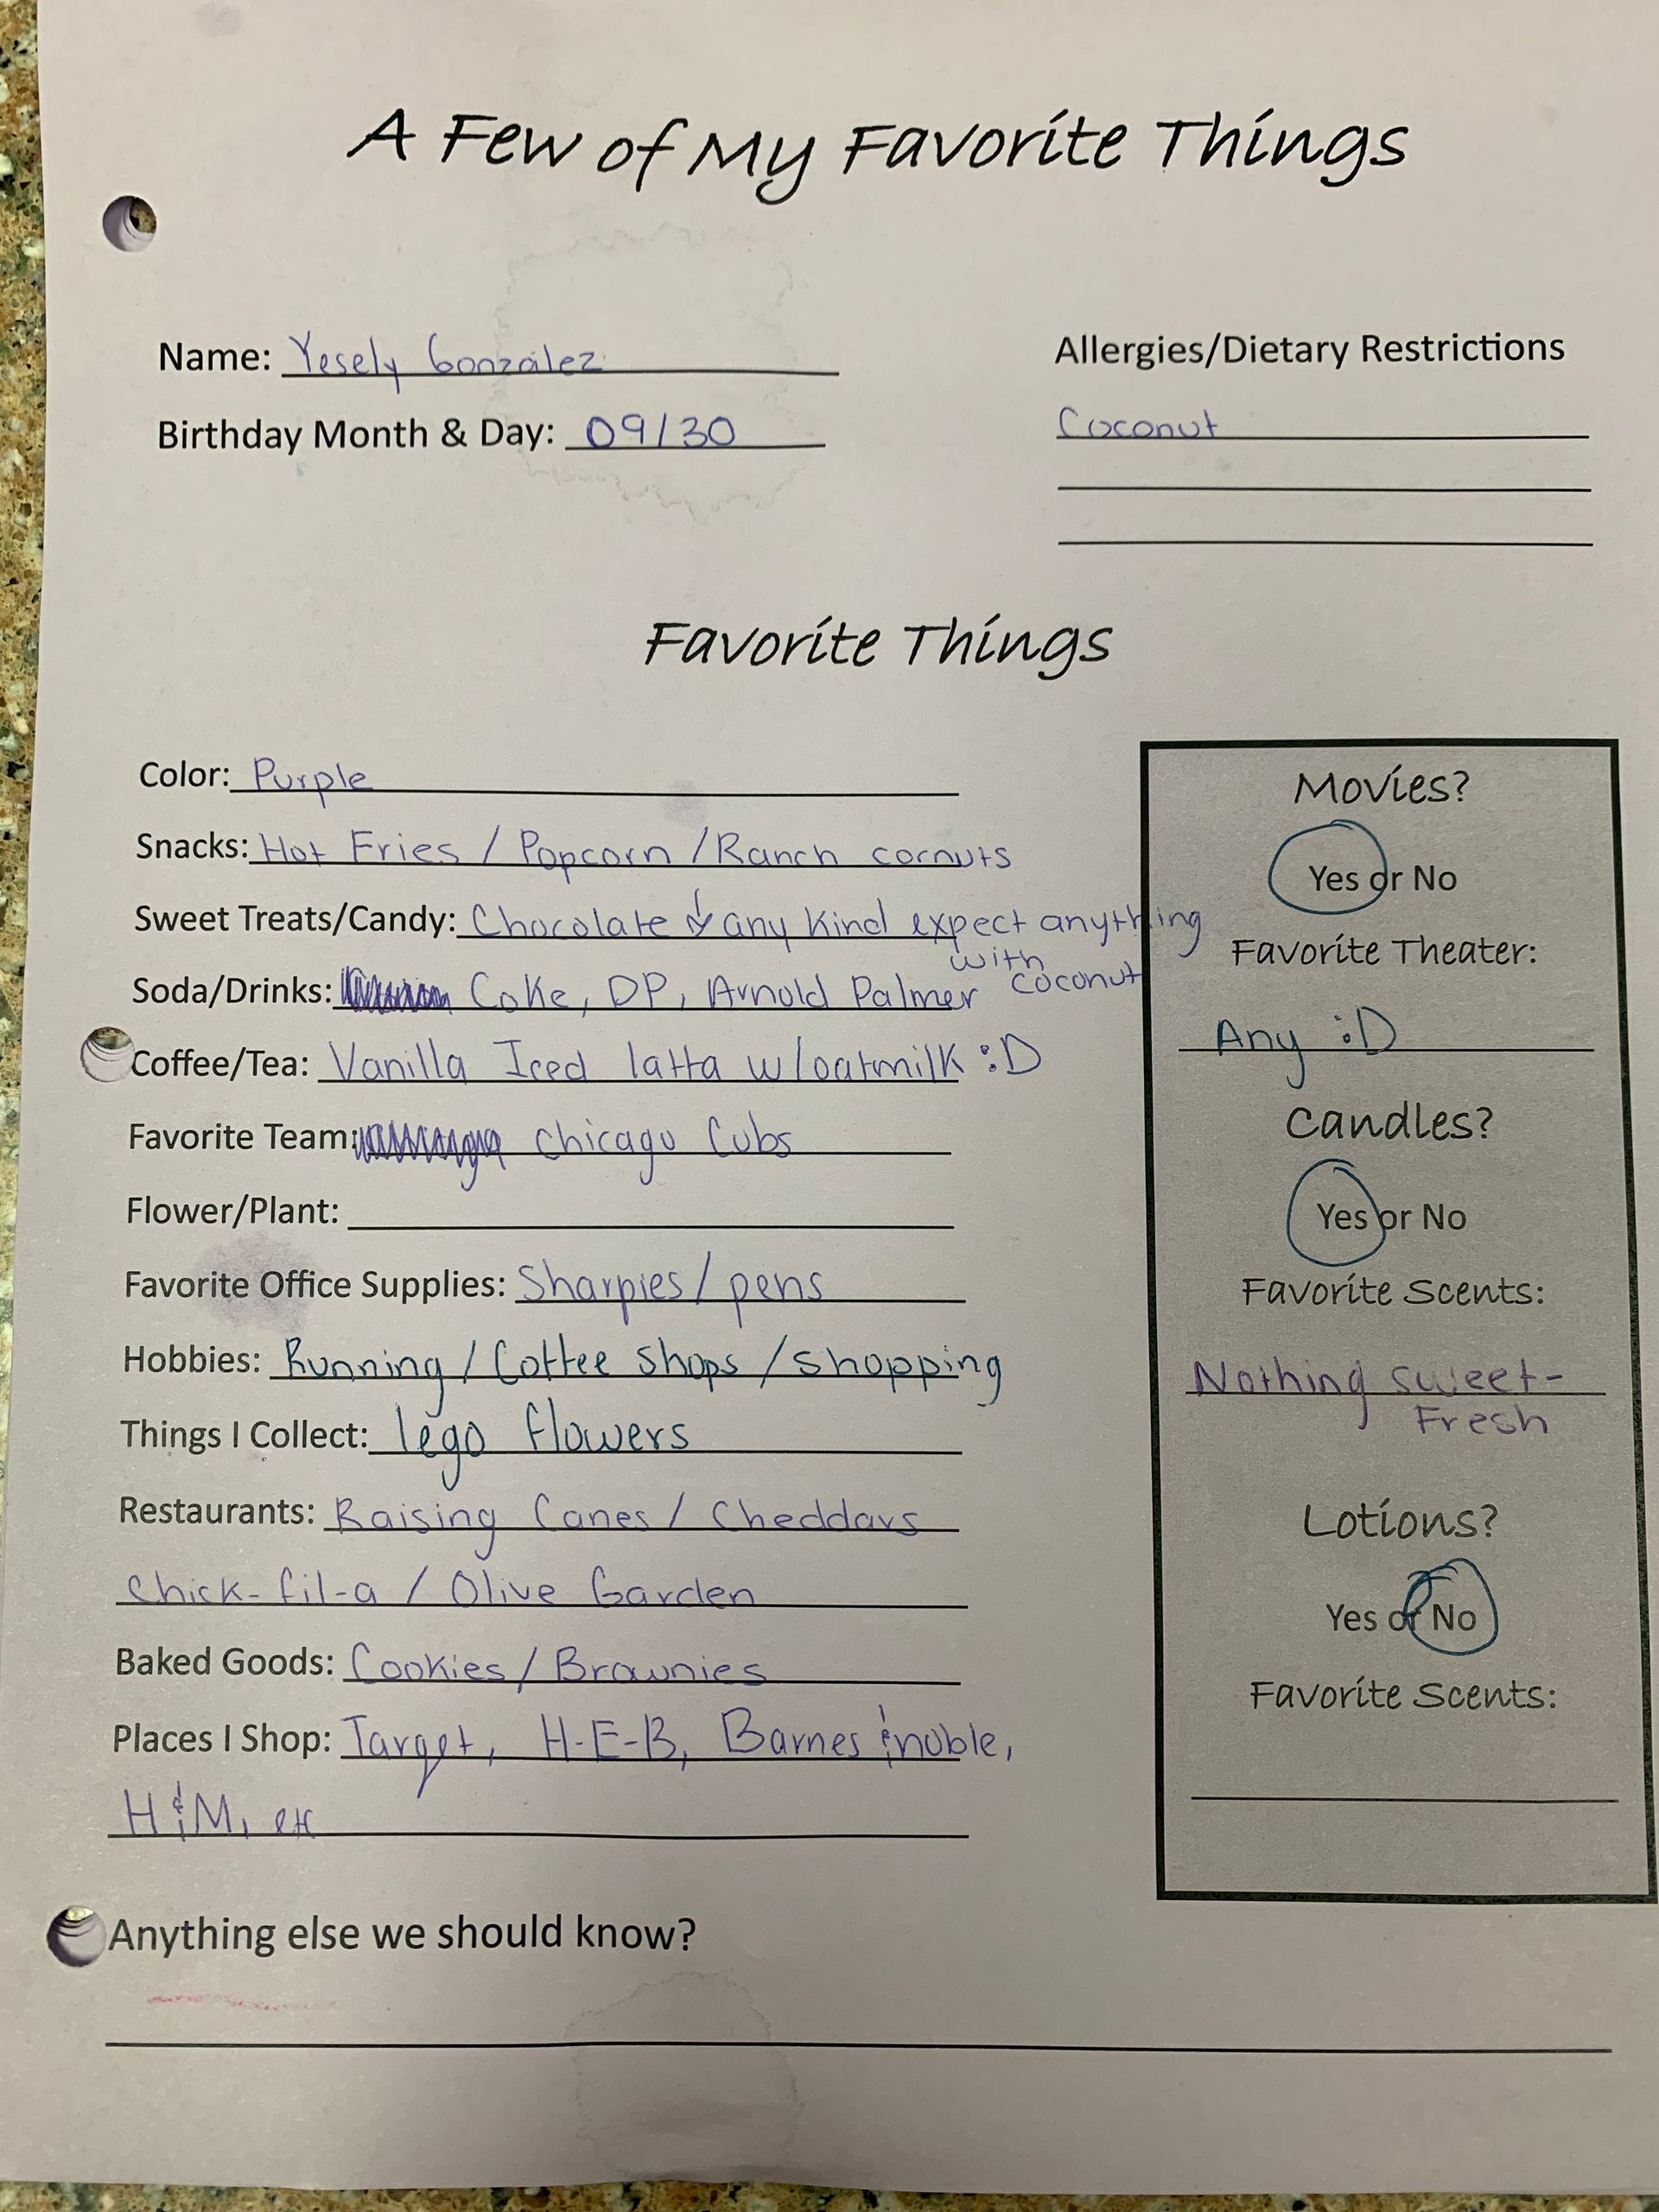 A Few of My Favorite Things
Name: Yesely Gonzalez
Birthday Month & Day: 09/30
Allergies/Dietary Restrictions
Coconut
Favorite Things
Color: Purple
Snacks: Hot Fries / Popcorn / Ranch cornuts
Sweet Treats/Candy: Chocolate & any kind expect anything
with coconut
Soda/Drinks: Coke, DP, Arnold Palmer
Coffee/Tea: Vanilla Iced latta w/oatmilk :D
Favorite Team: Chicago Cubs
Flower/Plant:
Favorite Office Supplies: Sharpies / pens
Hobbies: Running / Coffee shops / shopping
Things I Collect: lego flowers
Restaurants: Raising Canes / Cheddars
Chick-fil-a / Olive Garden
Baked Goods: Cookies / Brownies
Places I Shop: Target, H-E-B, Barnes & noble,
H & M,
Movies?
Yes or No
Favorite Theater:
Any :D
Candles?
Yes or No
Favorite Scents:
Nothing sweet-
Fresh
Lotions?
Yes or No
Favorite Scents:
Anything else we should know?